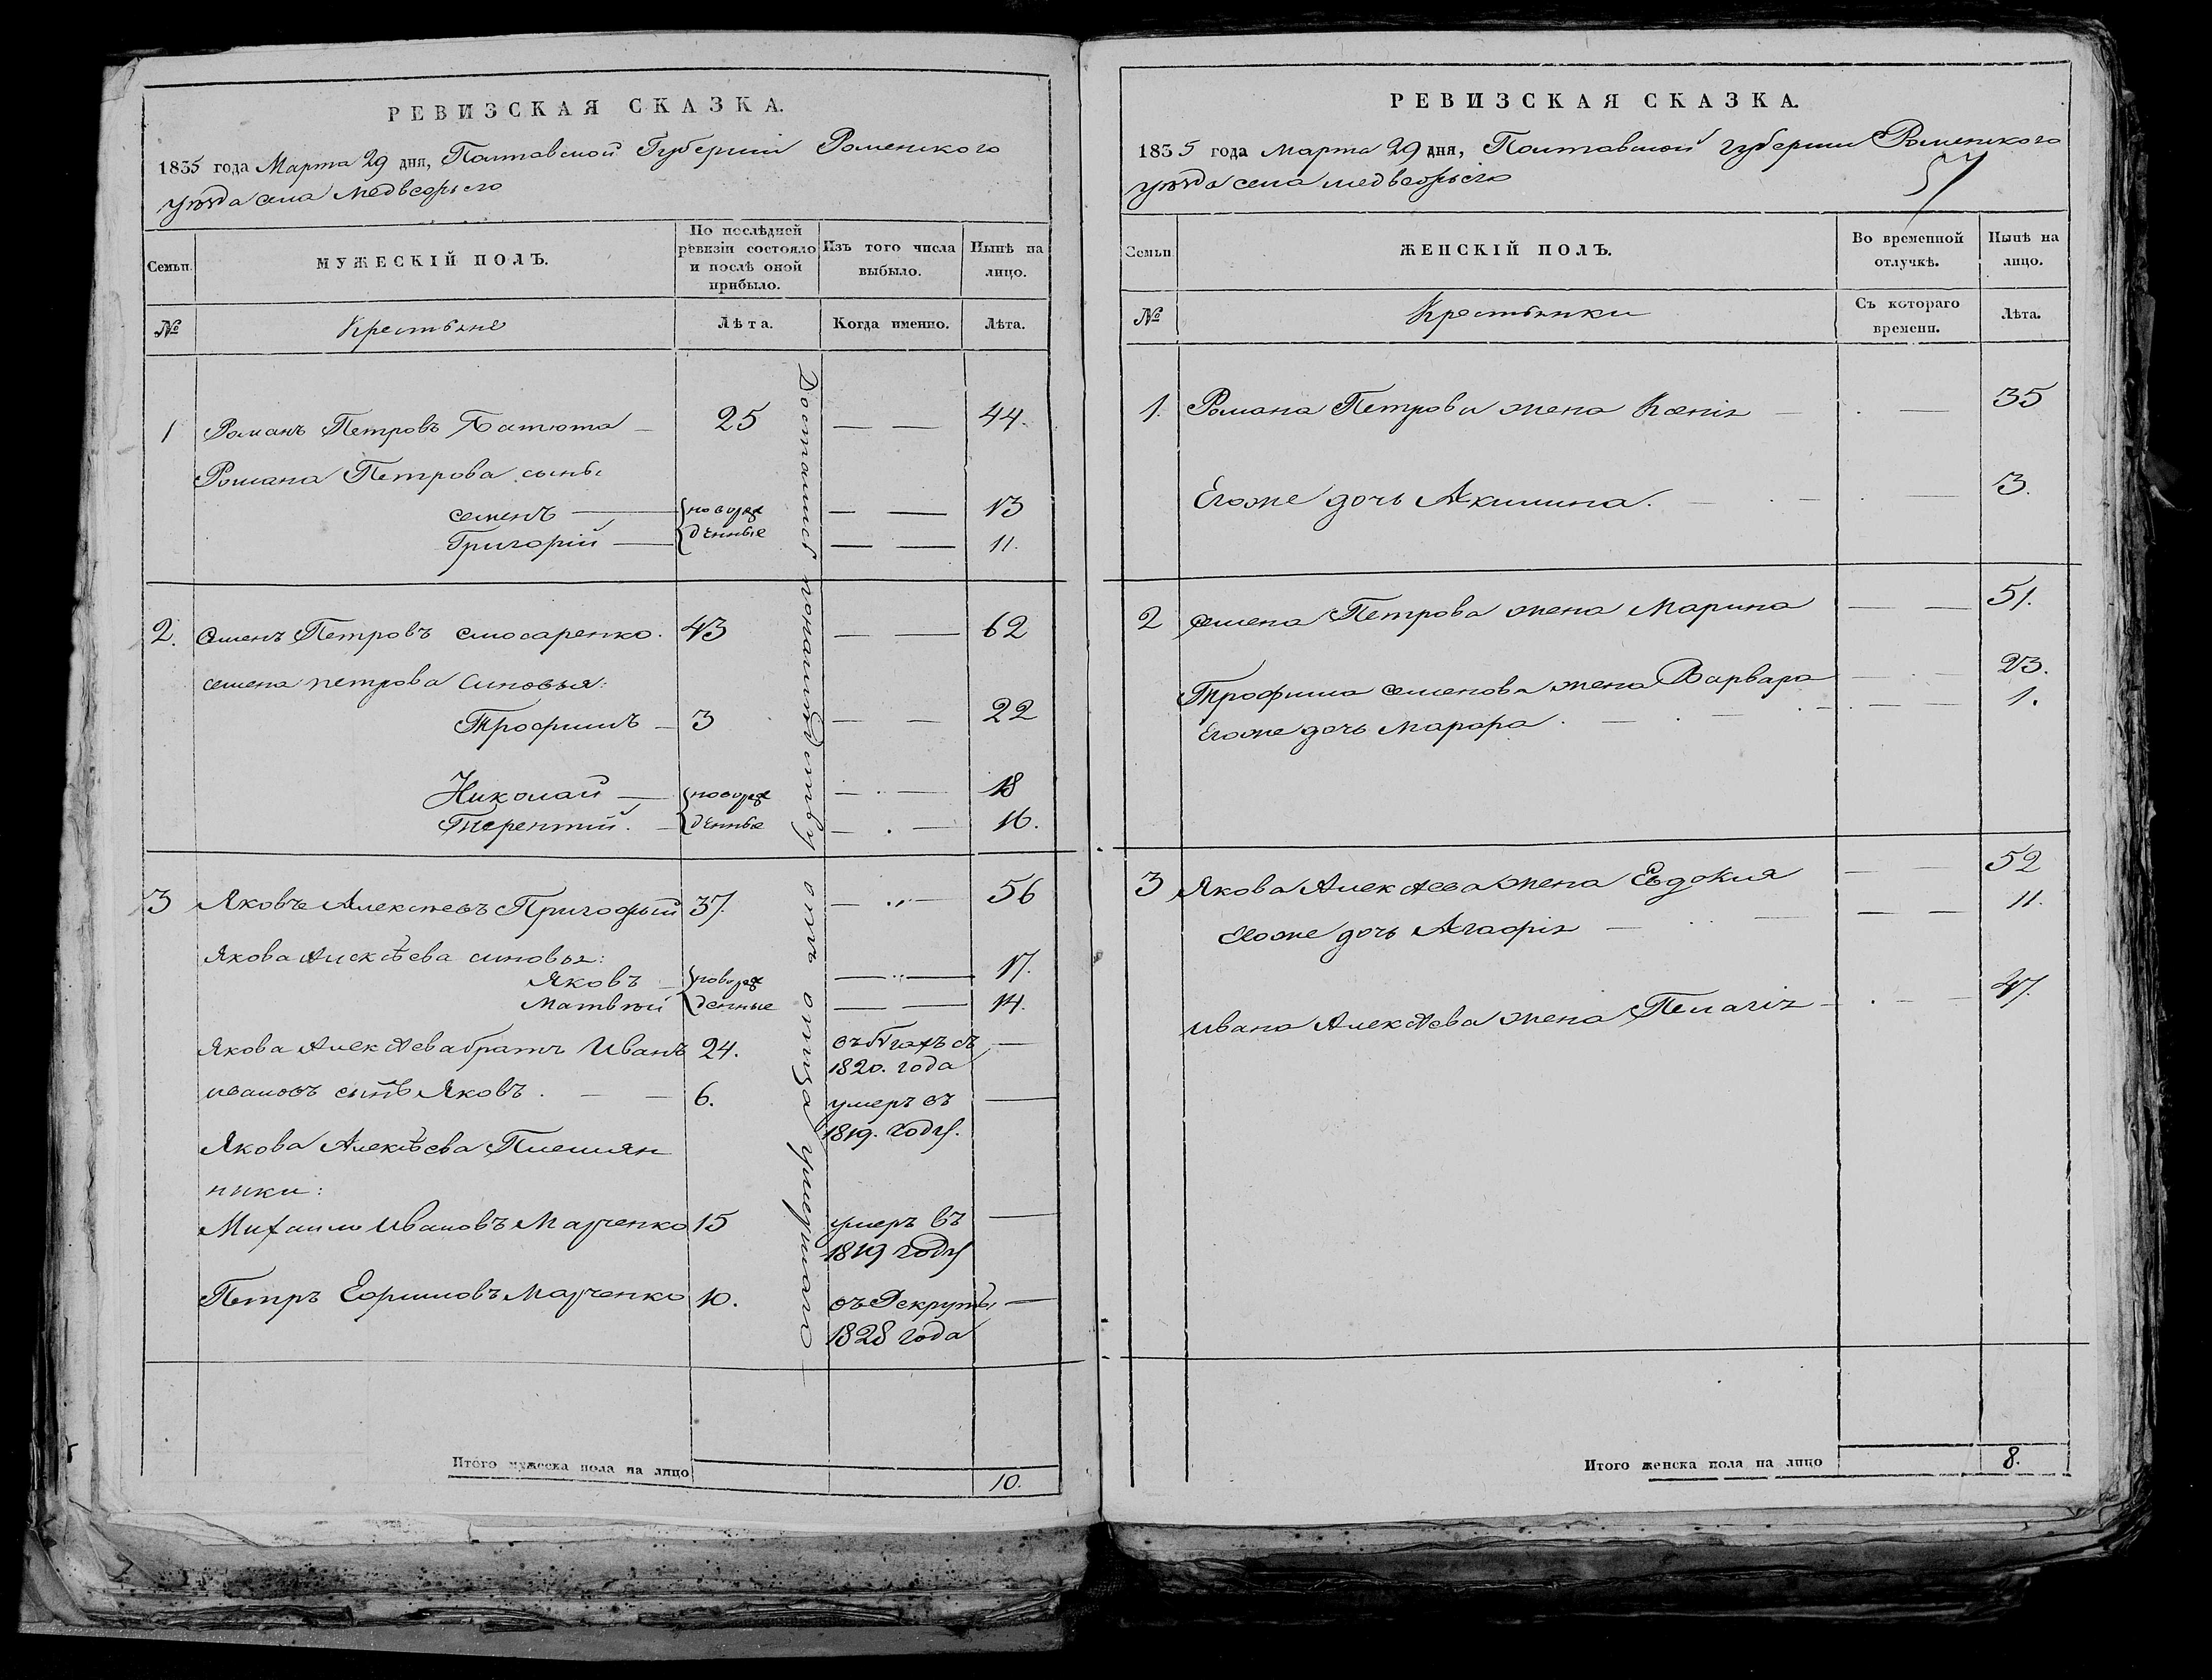 РЕВИЗСКАЯ СКАЗКА.
1835 года Марта 29 дня, Полтавской Губерніи Роменского
уѣзда села Медвежьего
Семьи.
МУЖЕСКІЙ ПОЛЪ.
По послѣдней ревизіи состояло и послѣ оной прибыло.
Изъ того числа выбыло.
Нынѣ на лицо.
№
Крестьяне
Лѣта.
Когда именно.
Лѣта.
Достались по наследству отъ отца умершаго
1 Романъ Петровъ Батюта 25 44.
Романа Петрова сыны
Семенъ новорож 13
Григорій денные 11.
2. Семенъ Петровъ Слюсаренко. 43 62
Семена Петрова синовья:
Трофимъ 3 22
Николай новорож 18
Терентий. денные 16.
3 Яковъ Алексѣевъ Пригожый 37. 56
Якова Алексѣева синовья:
Яковъ новорож 17.
Матвѣй денные 14.
Якова Алексѣева братъ Иванъ 24. въ бѣгахъ съ
1820. года
Ивановъ сынъ Яковъ. 6. умеръ въ
1819. году.
Якова Алексѣева Племян
ники:
Михаило Ивановъ Марченко 15 умеръ въ
1819 году
Петръ Ефимовъ Марченко 10. въ Рекруты
1828 года
Итого мужеска пола на лицо 10.
РЕВИЗСКАЯ СКАЗКА.
1835 года Марта 29 дня, Полтавской губерніи Роменского
уѣзда села медвежьего
57
Семьи
ЖЕНСКІЙ ПОЛЪ.
Во временной отлучкѣ.
Нынѣ на лицо.
№
Крестьянки
Съ котораго времени.
Лѣта.
1. Романа Петрова жена Ксенія 35
Егоже дочь Акилина. 3.
2 Семена Петрова жена Марина 51.
Трофима Семенова жена Варвара 23.
Егоже дочь Марфа. 1.
3 Якова Алексѣева жена Евдокия 52
Егоже дочь Агафія 11.
Ивана Алексѣева жена Пелагія 47.
Итого женска пола на лицо 8.